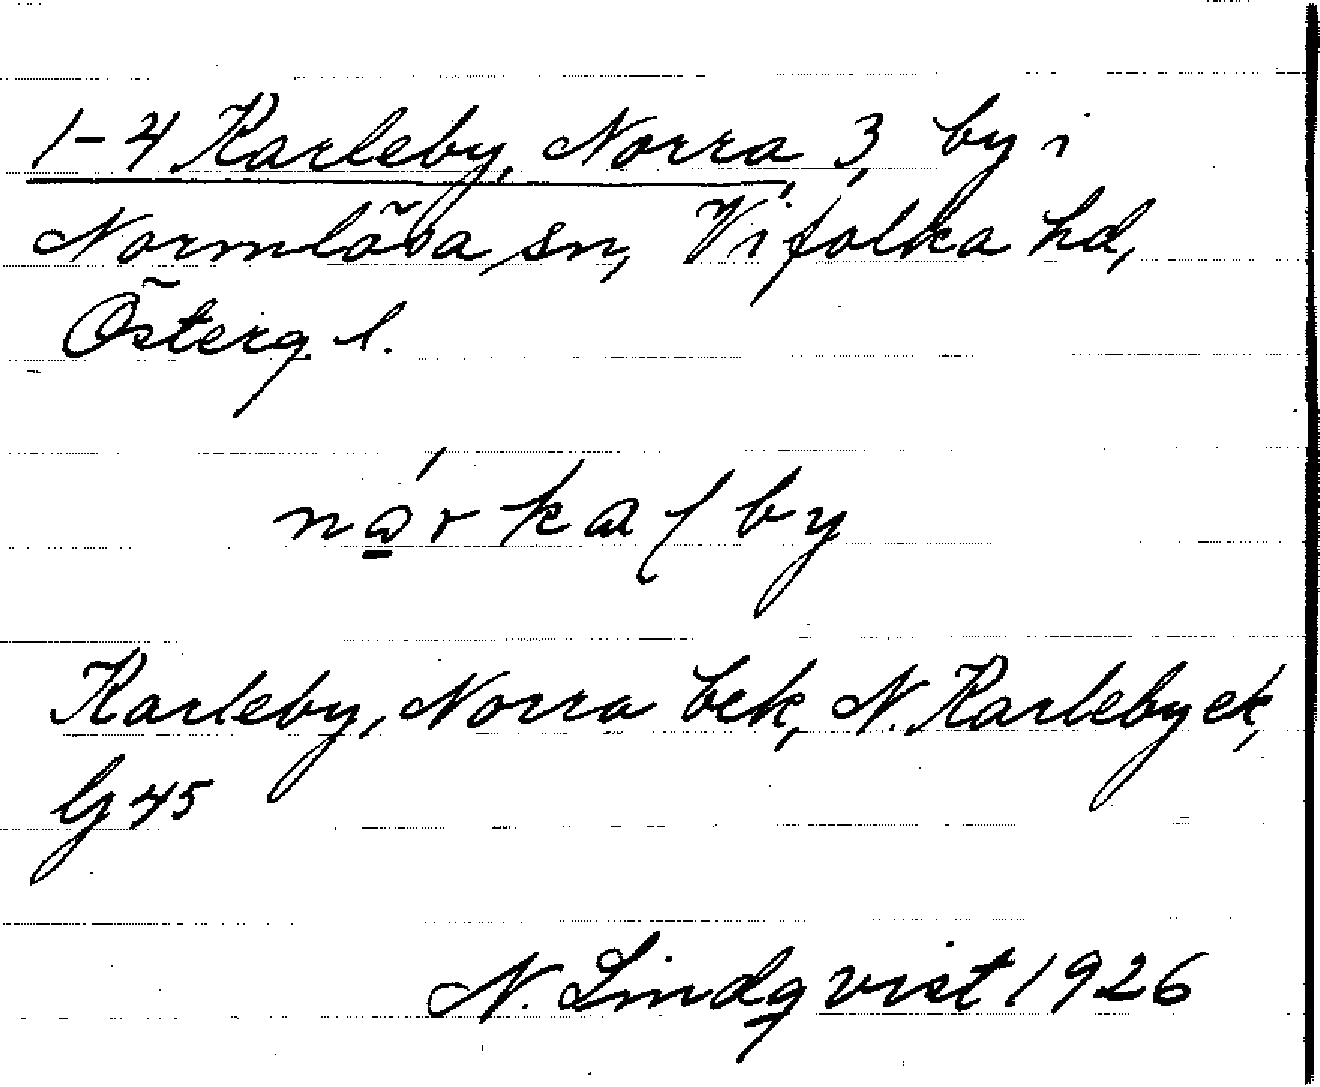 1-4 Karleby, Norra, 3, by i
Normlösa sn, Vifolka hd,
Österg. l.
Karleby, Norra bek, N. Karleby ek,
G 45
N. Lindqvist 1926